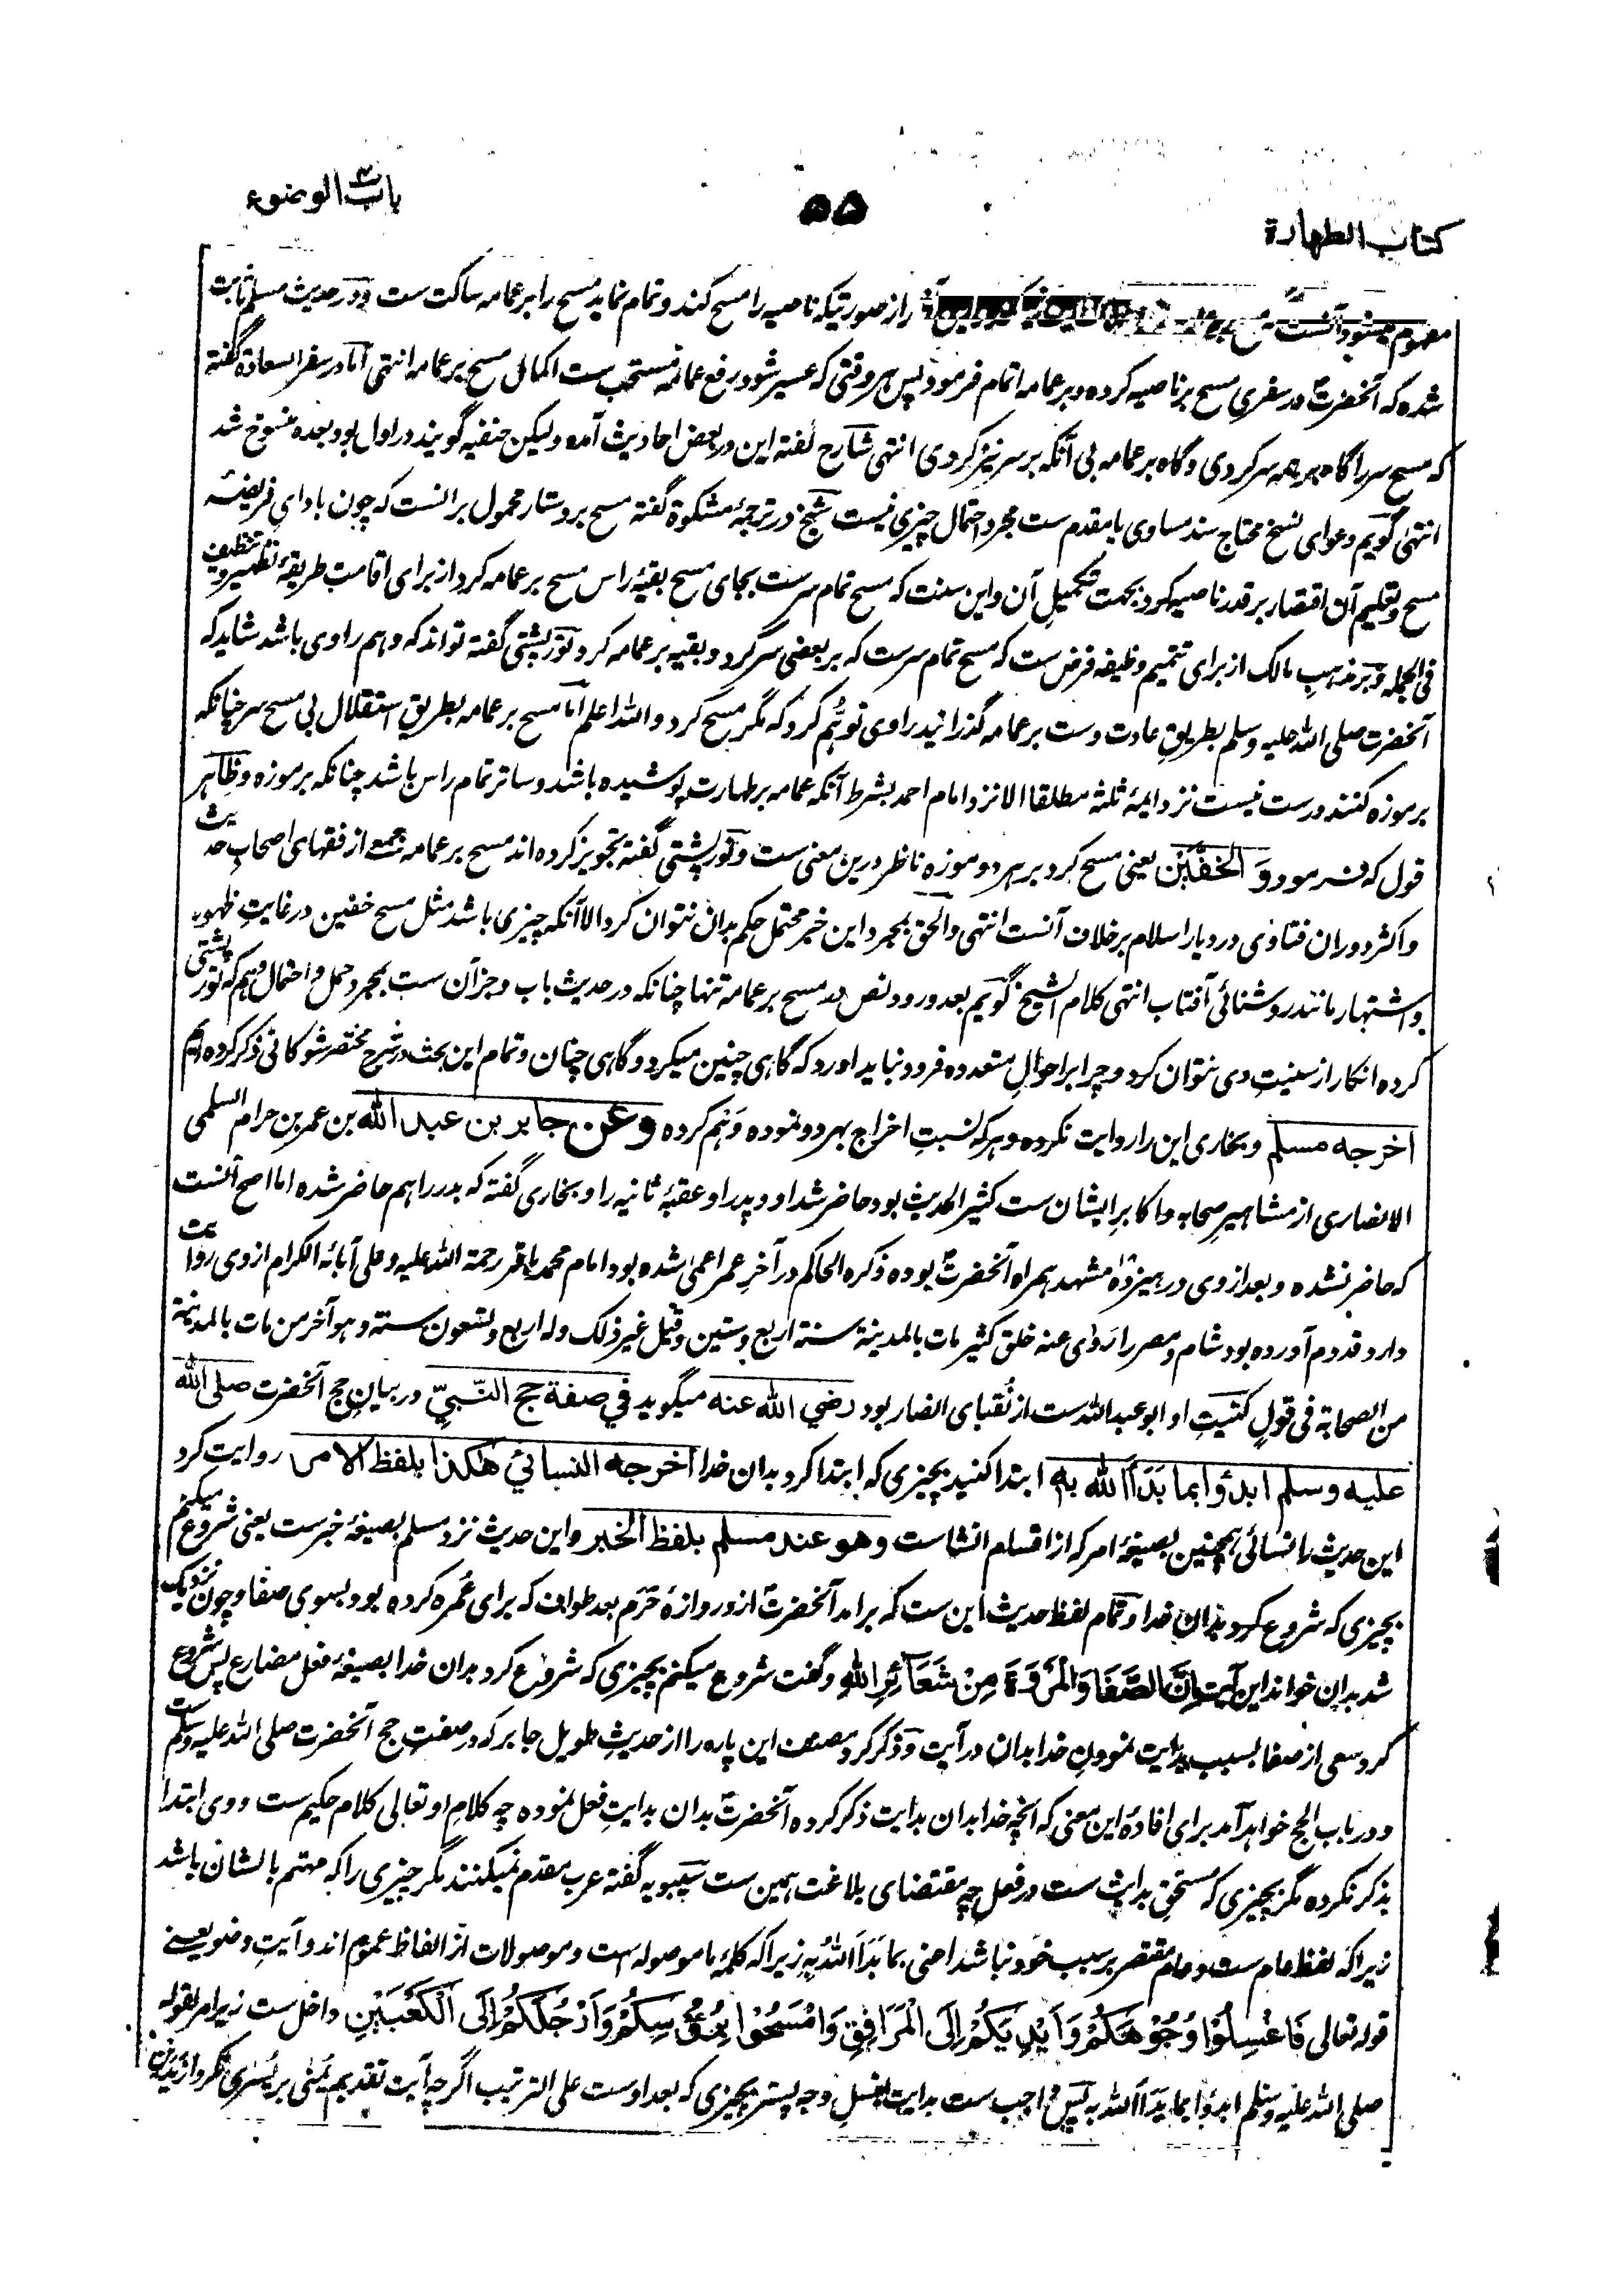 کتاب الطهارة
۵۵
باب الوضوء
مفهوم میشود آنست را از صورتیکه ناصیه را مسح کند و تمام نماید مسح را بر عمامه ساکت ست و در حدیث مسلم ثابت
شده که آنحضرتؐ در سفری مسح بر ناصیه کرده و بر عمامه اتمام فرمود پس هر وقتی که عسیر شود رفع عمامه مستحب ست اکمال مسح بر عمامه انتهی اما در سفر السعادة گفته
که مسح سر را گاه بر همه سر کردی و گاه بر عمامه بی آنکه بر سر نیز کردی انتهی شارح گفته این در بعض احادیث آمده ولیکن حنفیه گویند در اول بود بعده منسوخ شد
انتهی گویم دعوای نسخ محتاج سند مساوی با مقدم ست مجرد احتمال چیزی نیست شیخ در ترجمهٔ مشکوة گفته مسح بر دستار محمول برانست که چون با دای فریضهٔ
مسح و تعلیم آن اقتصار بر قدر ناصیه کرد بجهت تکمیل آن و این سنت که مسح تمام سرست بجای مسح بقیهٔ راس مسح بر عمامه کرد از برای اقامت طریقهٔ تطهیر و تنظیف
فی الجمله و بر مذهب مالک از برای تتمیم وظیفه فرض ست که مسح تمام سرست که بر بعضی سر کرد و بقیه بر عمامه کرد تورپشتی گفته تواند که وهم راوی باشد شاید که
آنحضرت صلی الله علیه وسلم بطریق عادت دست بر عمامه گذرانید راوی توهُّم کرد که مگر مسح کرد والله اعلم اما مسح بر عمامه بطریق استقلال بی مسح سر چنانکه
بر موزه کنند درست نیست نزد ایمهٔ ثلثه مطلقا الا نزد امام احمد بشرط آنکه عمامه بر طهارت پوشیده باشد و ساتر تمام راس باشد چنانکه بر موزه و ظاهر
قول که فرمود وَ الخفَّیْن یعنی مسح کرد بر هر دو موزه ناظر درین معنی ست و تورپشتی گفته تجویز کرده اند مسح بر عمامه جمعے از فقهای اصحاب حدیث
و اکثر دوران فتاوی در دیار اسلام بر خلاف آنست انتهی والحق بمجرد این خبر محتمل حکم بدان نتوان کرد الا آنکه چیزی باشد مثل مسح خفین در غایت ظهور
و اشتهار مانند روشنائی آفتاب انتهی کلام الشیخ گویم بعد ورود نص در مسح بر عمامه تنها چنانکه در حدیث باب و جز آن ست بمجرد حمل و احتمال وهم که تورپشتی
کرده انکار از سنیت وی نتوان کرد و چرا بر احوال متعدده فرود نباید اورد که گاهی چنین میکرد و گاهی چنان و تمام این بحث در شرح مختصر شوکانی ذکر کرده ایم
اخرجه مسلم و بخاری این را روایت نکرده و هر که نسبت اخراج بهر دو نموده وَهم کرده وعن جابر بن عبد الله بن عمر بن حرام السلمی
الانصاری از مشاهیر صحابه و اکابر ایشان ست کثیر الحدیث بود حاضر شد او و پدر او عقبهٔ ثانیه را و بخاری گفته که بدر را هم حاضر شده اما اصح آنست
که حاضر نشده و بعد ازوی در هیزده مشهد همراه آنحضرتؐ بوده ذکره الحاکم در آخر عمر اعمی شده بود امام محمد باقر رحمة الله علیه و علی آبائه الکرام ازوی روایت
دارد قدوم آورده بود شام و مصر را رَوٰی عنه خلق کثیر مات بالمدینة سنة اربع وستین وقیل غیر ذلک وله اربع وتسعون سنة وهو آخر من مات بالمدینة
من الصحابة فی قولٍ کنیت او ابو عبدالله ست از نُقبای انصار بود رضي الله عنه میگوید في صفة حج النّبيّ در بیان حج آنحضرت صلی الله
علیه وسلم ابدؤا بما بَدَأ الله به ابتدا کنید بچیزی که ابتدا کرد بدان خدا اخرجه النسائيُ هٰكذا بلفظ الامر روایت کرد
این حدیث را نسائی همچنین بصیغهٔ امر که از اقسام انشاست وهو عند مسلم بلفظ الخبر و این حدیث نزد مسلم بصیغهٔ خبرست یعنی شروع میکنم
بچیزی که شروع کرد بدان خدا و تمام لفظ حدیث این ست که برامد آنحضرتؐ از دروازهٔ حَرَم بعد طواف که برای عُمره کرده بود بسوی صفا و چون نزدیک
شد بدان خواند این آیت اِنَّ الصَّفَا وَالْمَرْوَةَ مِنْ شَعَآئِرِ اللهِ و گفت شروع میکنم بچیزی که شروع کرد بدان خدا بصیغهٔ فعل مضارع پس شروع
کرد سعی از صفا بسبب بدایت نمودن خدا بدان در آیت و ذکر کرد مصنف این پاره را از حدیث طویل جابر که در صفت حج آنحضرت صلی الله علیه وسلم ست
و در باب الحج خواهد آمد برای افادهٔ این معنی که آنچه خدا بدان بدایت ذکر کرده آنحضرتؐ بدان بدایت فعل نموده چه کلام او تعالی کلام حکیم ست و وی ابتدا
بذکر نکرده مگر بچیزی که مستحق بدایت ست در فعل چه مقتضای بلاغت همین ست سیبویه گفته عرب مقدم نمیکنند مگر چیزی را که مهتم بالشان باشد
زیرا که لفظ عام ست و عام مقتصر بر سبب خود نباشد اعنی بما بَدَأ اللهُ بِه زیرا که کلمهٔ ما موصوله است و موصولات از الفاظ عموم اند و آیت وضو یعنے
قوله تعالی فَاغْسِلُوْا وُجُوْهَكُمْ وَاَيْدِيَكُمْ اِلَى الْمَرَافِقِ وَامْسَحُوْا بِرُءُوْسِكُمْ وَاَرْجُلَكُمْ اِلَى الْكَعْبَيْنِ داخل ست زیر امر بقوله
صلی الله علیه وسلم ابدؤا بما بدأ الله به پس واجب ست بدایت بغسل وجه پستر بچیزی که بعد اوست علی الترتیب اگرچه آیت تقدیم یُمنٰی بر یُسرٰی نکرد